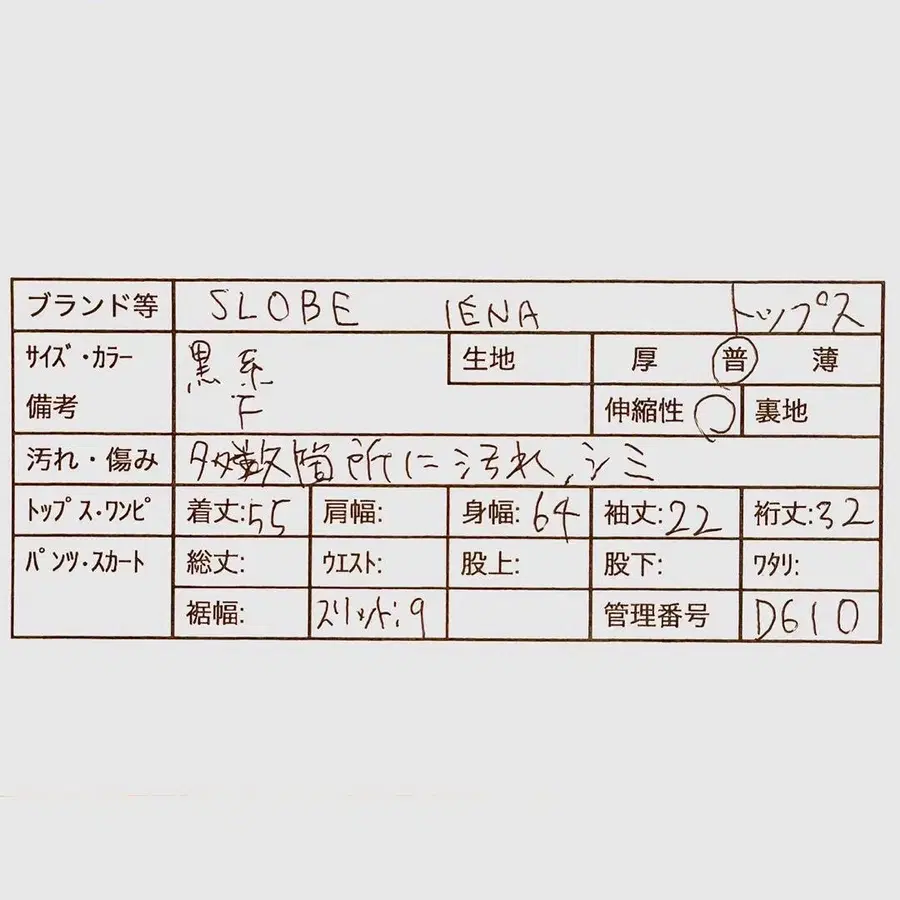 ブランド等 SLOBE IENA トップス
サイズ・カラー 黒系 生地 厚 普 薄
備考 F 伸縮性 ○ 裏地
汚れ・傷み 多数箇所に汚れ、シミ
トップス・ワンピ 着丈:55 肩幅: 身幅:64 袖丈:22 裄丈:32
パンツ・スカート 総丈: ウエスト: 股上: 股下: ワタリ:
裾幅: スリット:9 管理番号 D610